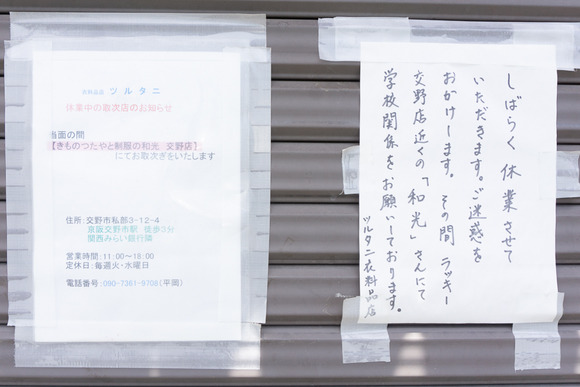 衣料品店 ツルタニ
休業中の取次店のお知らせ
当面の間
【きものつたやと制服の和光 交野店】
にてお取次ぎをいたします
住所:交野市私部3-12-4
京阪交野市駅 徒歩3分
関西みらい銀行隣
営業時間:11:00~18:00
定休日:毎週火・水曜日
電話番号:090-7361-9708(平岡)
しばらく休業させて
いただきます。ご迷惑を
おかけします。その間 ラッキー
交野店近くの「和光」さんにて
学校関係をお願いしております。
ツルタニ衣料品店